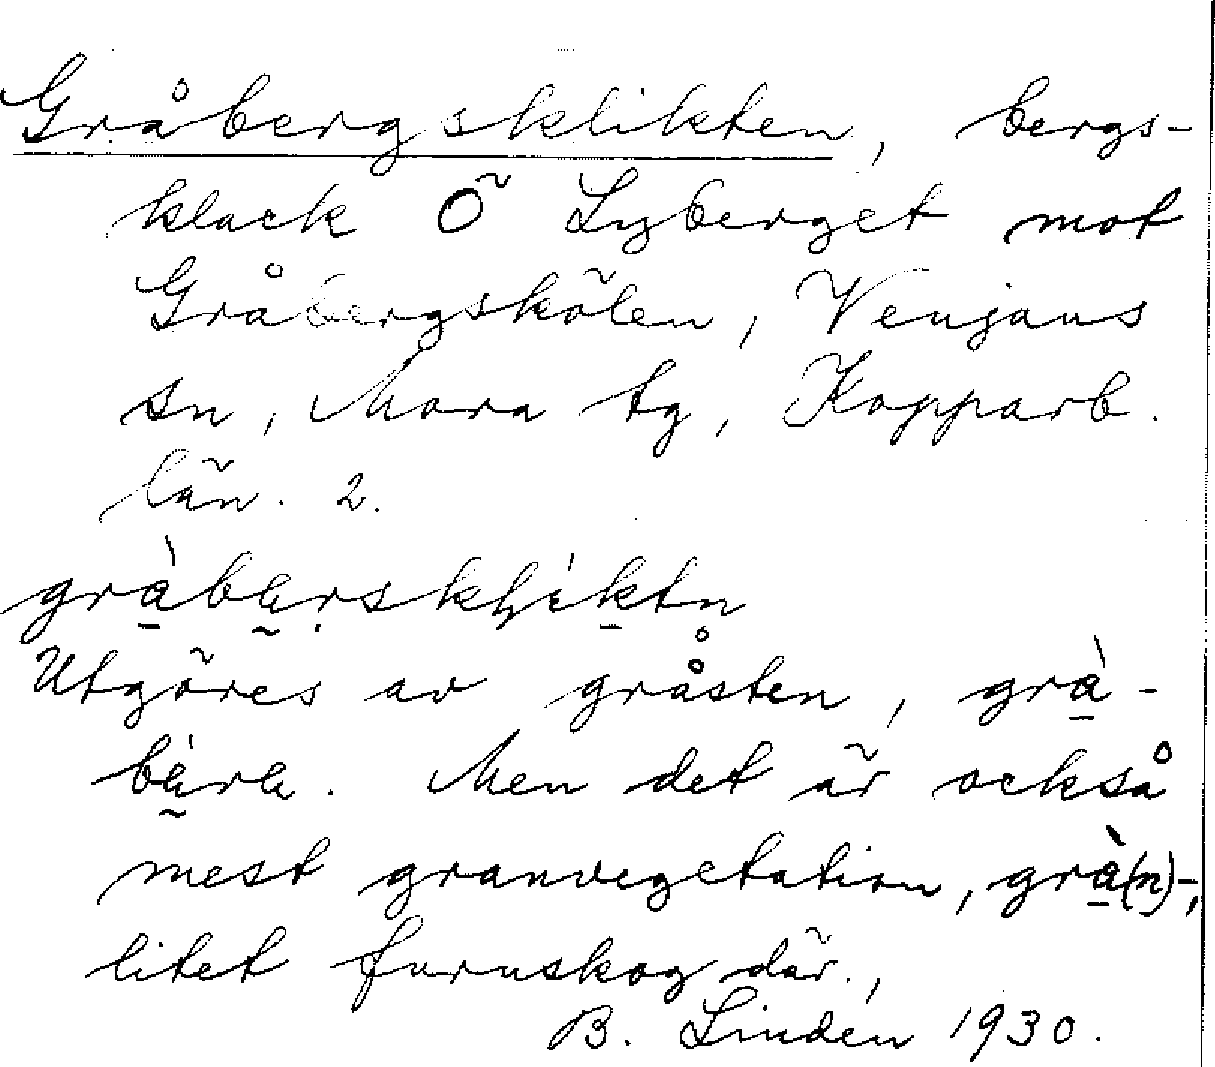 Gråbergsklikten, bergs-
klack Ö Lyberget mot
Gråbergskölen, Venjans
sn, Mora tg, Kopparb.
län. 2.
grà̱ba̰rskḷiktn
Utgöres av gråsten, grà̱-
bà̰ra. Men det är också
mest granvegetation, grà̱(n)-,
litet furuskog där.,
B. Lindén 1930.